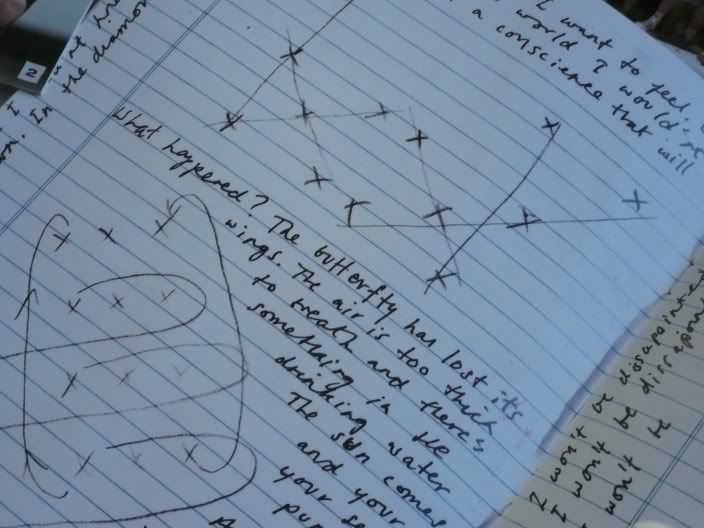 I want to feel.
world I would
a conscience that will
2
at
In the diamon
What happened? The butterfly has lost its
wings. The air is too thick
to treath and there's
something in the
drinking water
The sun comes
and your
your se
pur
I won't be disappointed
I won't be disappoin
won't be